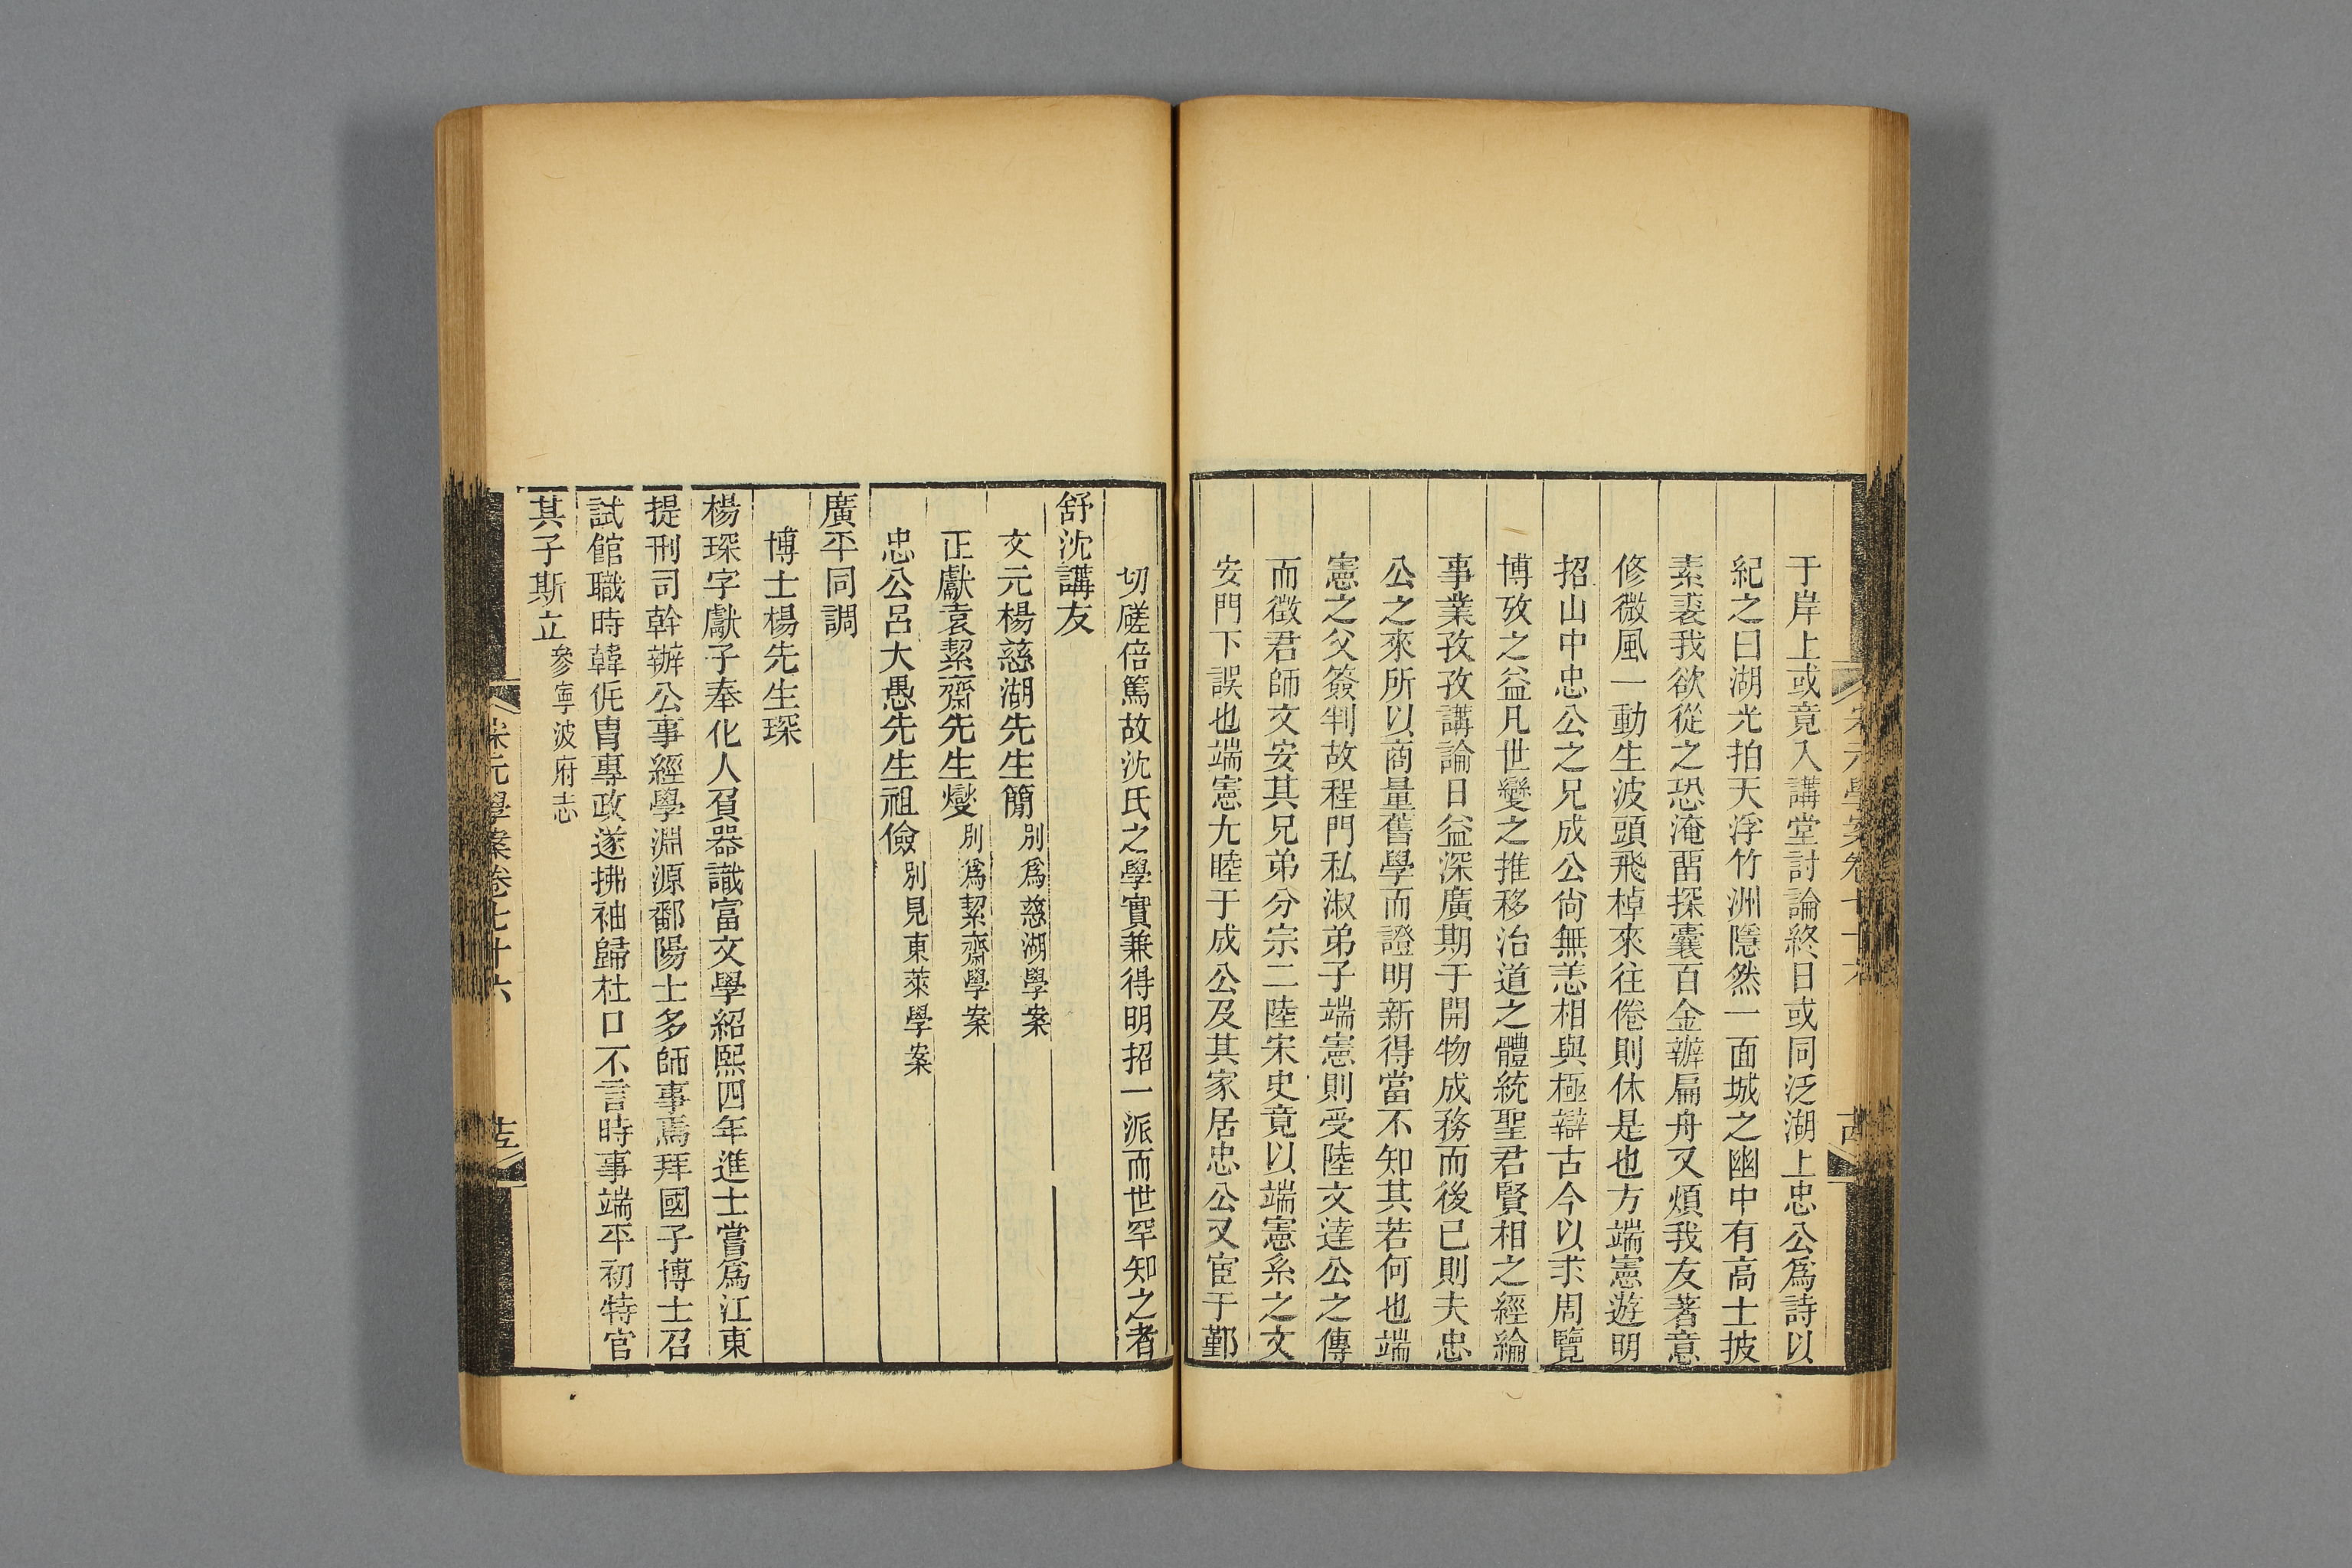 于岸上或竟入講堂討論終日或同泛湖上忠公爲詩以
紀之曰湖光拍天浮竹洲隱然一面城之幽中有高士披
素裘我欲從之恐淹畱探囊百金辦扁舟又煩我友著意
修微風一動生波頭飛棹來往倦則休是也方端憲遊明
招山中忠公之兄成公尙無恙相與極辯古今以求周覽
博攷之益凡世變之推移治道之體統聖君賢相之經綸
事業孜孜講論日益深廣期于開物成務而後已則夫忠
公之來所以商量舊學而證明新得當不知其若何也端
憲之父簽判故程門私淑弟子端憲則受陸文達公之傳
而徵君師文安其兄弟分宗二陸宋史竟以端憲系之文
安門下誤也端憲尢睦于成公及其家居忠公又宦于鄞
切磋倍篤故沈氏之學實兼得明招一派而世罕知之者
舒沈講友
文元楊慈湖先生簡別爲慈湖學案
正獻袁絜齋先生燮別爲絜齋學案
忠公呂大愚先生祖儉別見東萊學案
廣平同調
博士楊先生琛
楊琛字獻子奉化人負器識富文學紹熙四年進士嘗爲江東
提刑司幹辦公事經學淵源鄱陽士多師事焉拜國子博士召
試館職時韓侂冑專政遂拂袖歸杜口不言時事端平初特官
其子斯立參寧波府志
宋元學案卷七十六